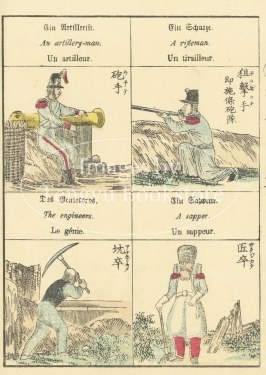 Ein Artillerist.
An artillery-man.
Un artilleur.
砲手
Ein Schütze.
A rifleman.
Un tirailleur.
狙撃手
即施條砲隊
Das
The engineers.
Le génie.
坑卒
A sapper.
Un sappeur.
匠卒